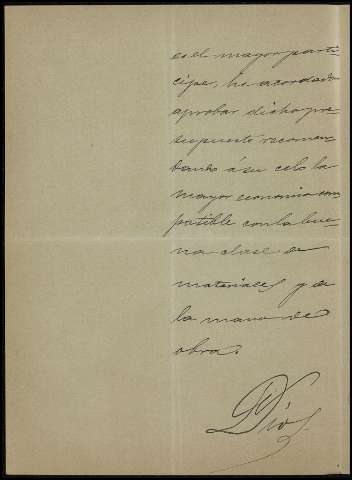 es el mayor parti-
cipe, ha acordado
aprobar dicho pre-
supuesto recomen-
dando á su celo la
mayor economia com-
patible con la bue-
na clase de
materiales y de
la mano de
obra.
Dios